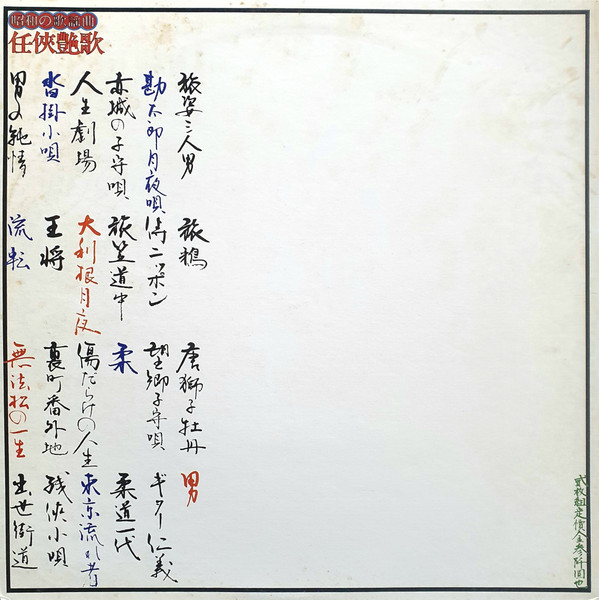 昭和の歌謡曲
任侠艶歌
旅姿三人男
勘太郎月夜唄
赤城の子守唄
人生劇場
沓掛小唄
男の純情
旅鴉
侍ニッポン
旅笠道中
大利根月夜
王将
流転
唐獅子牡丹
望郷子守唄
柔
傷だらけの人生
裏町番外地
無法松の一生
男
ギター仁義
柔道一代
東京流れ者
残侠小唄
出世街道
貳枚組定價金参阡圓也